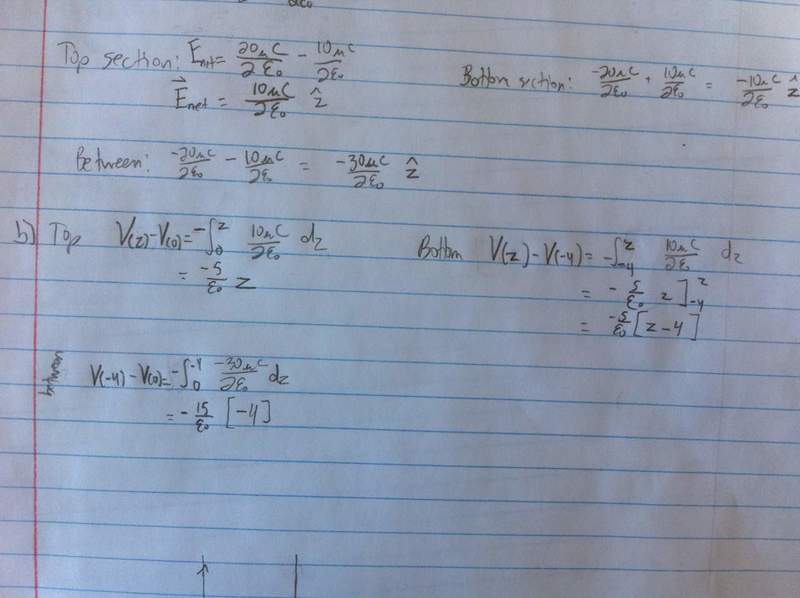 2ε₀
Top section: E_net = 20μC/2ε₀ - 10μC/2ε₀
E⃗_net = 10μC/2ε₀ ẑ
Bottom section: -20μC/2ε₀ + 10μC/2ε₀ = -10μC/2ε₀ ẑ
Between: -20μC/2ε₀ - 10μC/2ε₀ = -30μC/2ε₀ ẑ
b) Top V(z)-V(0) = -∫₀^z 10μC/2ε₀ dz
= -5/ε₀ z
Bottom V(z)-V(-4) = -∫₋₄^z 10μC/2ε₀ dz
= -5/ε₀ z]₋₄^z
= -5/ε₀ [z-4]
between V(-4)-V(0) = -∫₀^-4 -30μC/2ε₀ dz
= -15/ε₀ [-4]